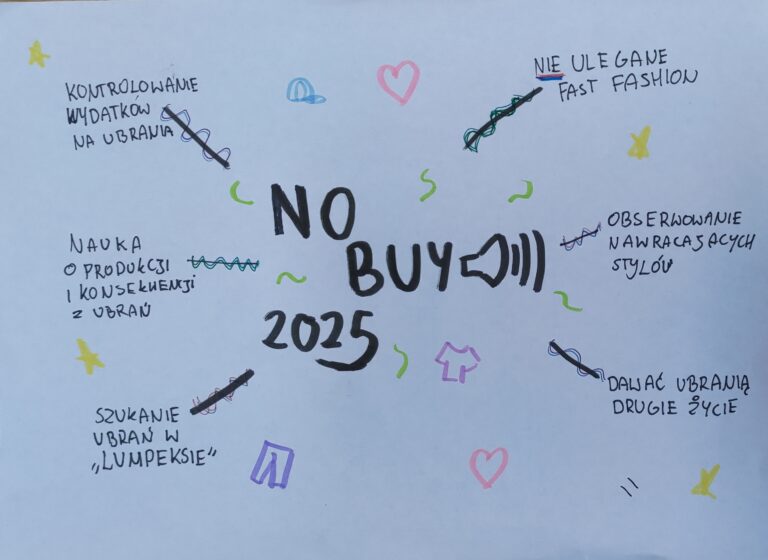 KONTROLOWANIE
WYDATKÓW
NA UBRANIA
NIE ULEGANE
FAST FASHION
NO
BUY
2025
NAUKA
O PRODUKCJI
I KONSEKUENCJI
Z UBRAŃ
OBSERWOWANIE
NAWRACAJĄCYCH
STYLÓW
SZUKANIE
UBRAŃ W
„LUMPEKSIE”
DAWAĆ UBRANIĄ
DRUGIE ŻYCIE